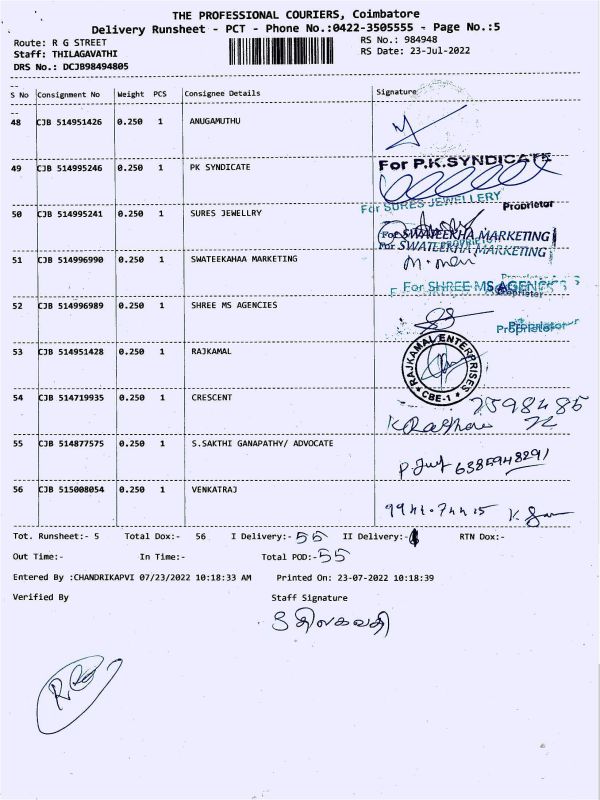 THE PROFESSIONAL COURIERS, Coimbatore
Delivery Runsheet - PCT - Phone No.:0422-3505555 - Page No.:5
Route: R G STREET RS No.: 984948
Staff: THILAGAVATHI RS Date: 23-Jul-2022
DRS No.: DCJB98494805
S No Consignment No Weight PCS Consignee Details Signature
48 CJB 514951426 0.250 1 ANUGAMUTHU
49 CJB 514995246 0.250 1 PK SYNDICATE For P.K.SYNDICATE
Proprietor
50 CJB 514995241 0.250 1 SURES JEWELLRY For SURES JEWELLERY
For SWATEEKHA MARKETING
For SWATEEKHA MARKETING
51 CJB 514996990 0.250 1 SWATEEKAHAA MARKETING
For SHREE MS AGENCIES
Proprietor
52 CJB 514996989 0.250 1 SHREE MS AGENCIES
Proprietor
53 CJB 514951428 0.250 1 RAJKAMAL RAJKAMAL ENTERPRISES * CBE-1 *
54 CJB 514719935 0.250 1 CRESCENT
55 CJB 514877575 0.250 1 S.SAKTHI GANAPATHY/ ADVOCATE 6385948291
56 CJB 515008054 0.250 1 VENKATRAJ
Tot. Runsheet:- 5 Total Dox:- 56 I Delivery:- 56 II Delivery:- RTN Dox:-
Out Time:- In Time:- Total POD:- 55
Entered By :CHANDRIKAPVI 07/23/2022 10:18:33 AM Printed On: 23-07-2022 10:18:39
Verified By Staff Signature
S திலகவதி